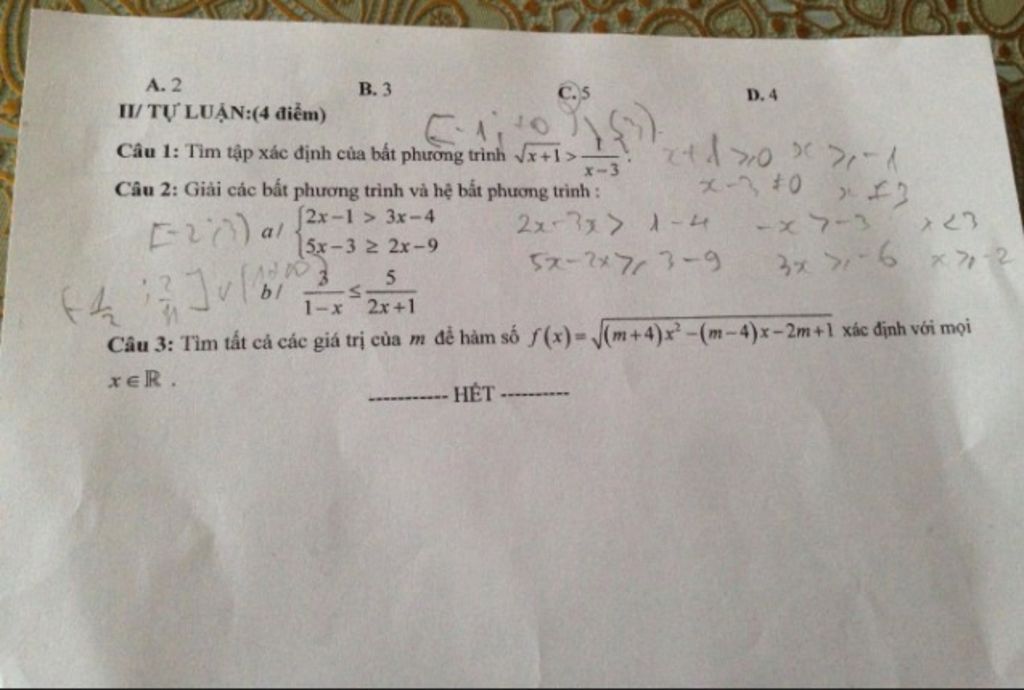 A. 2 B. 3 C. 5 D. 4
II/ TỰ LUẬN:(4 điểm)
[-1; +∞) \ {3}
Câu 1: Tìm tập xác định của bất phương trình √(x+1) > 1/(x-3). x+1 ⩾ 0 x ⩾ -1
x-3 ≠ 0 x ≠ 3
Câu 2: Giải các bất phương trình và hệ bất phương trình :
[-2; 3) a/ {2x-1 > 3x-4 2x-3x > 1-4 -x > -3 x < 3
5x-3 ≥ 2x-9 5x-2x ⩾ 3-9 3x ⩾ -6 x ⩾ -2
(-1/2 ; 2/11] ∪ (1;+∞) b/ 3/(1-x) ≤ 5/(2x+1)
Câu 3: Tìm tất cả các giá trị của m để hàm số f(x)=√((m+4)x²-(m-4)x-2m+1) xác định với mọi
x∈ℝ .
----------- HẾT ----------